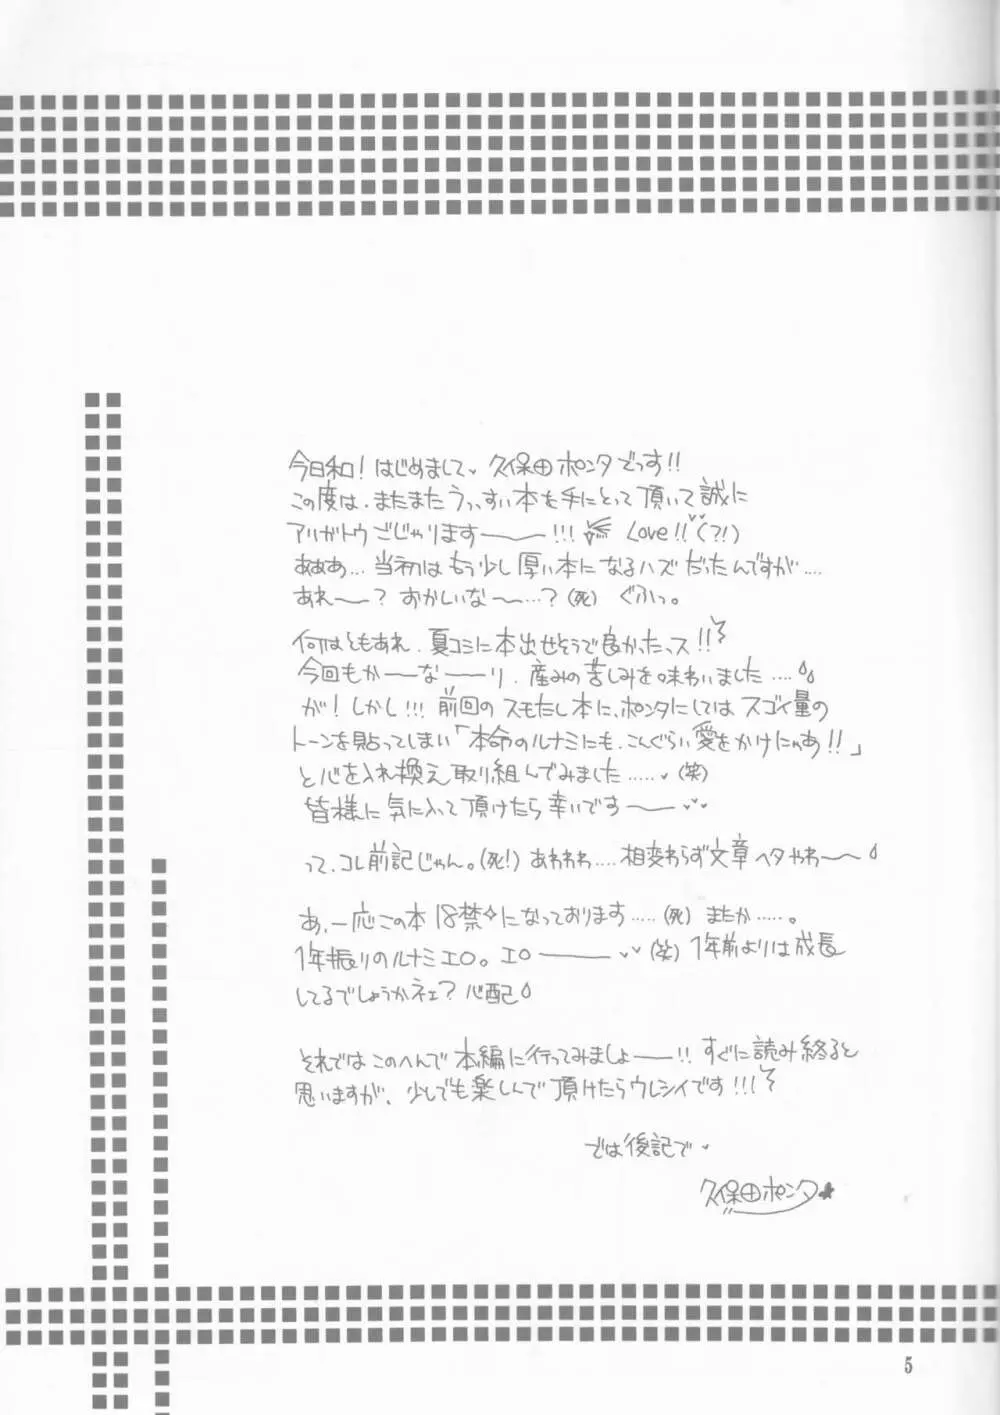 今日和！はじめまして、久保田ポンタでっす!!
この度は、またまたうっっすい本を手にとって頂いて誠に
アリガトウごじゃりますー〜ー!!! Love!!(?!)
あああ…当初はもう少し厚い本になるハズだったんですが….
あれー〜ー？おかしいなー〜…？(死) ぐふっ。
何はともあれ、夏コミに本出せそうで良かったっス!!
今回もかーーなーーり、産みの苦しみを味わいました….
が！しかし!!! 前回のスモたし本に、ポンタにしてはスゴイ量の
トーンを貼ってしまい「本命のルナミにも、こんぐらい愛をかけにゃあ!!」
と心を入れ換え取り組んでみました…..(笑)
皆様に気に入って頂けたら幸いですー〜ー
って、コレ前記じゃん。(死!) あわわわ….相変わらず文章ヘタやわー〜ー
あ、一応この本18禁になっております…..(死) またか…..。
1年振りのルナミエロ。エロ———(笑) 1年前よりは成長
してるでしょうかネェ？心配
それではこのへんで本編に行ってみましょーー!! すぐに読み終ると
思いますが、少しでも楽しんで頂けたらウレシイです!!!
では後記で
久保田ポンタ★
5